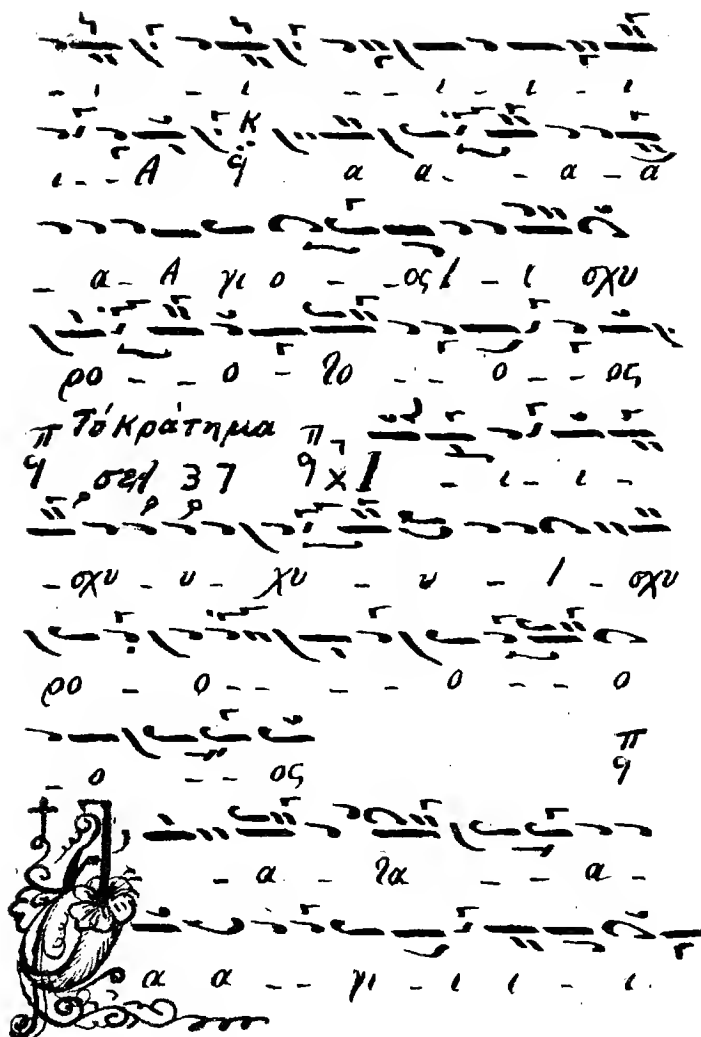 - ι - ι - - ι - ι - ι
ι - - Α α α - - α - α
- α - Α γι ο - - ος Ι - ι σχυ
ρο - - ο - το - - ο - ος
Τό Κράτημα
σελ 37 Ι - ι - ι -
- σχυ - υ - χυ - υ - Ι - σχυ
ρο - ο - - - - ο - - ο
- ο - - ος
- α - τα - - α -
α α - - γι - ι ι - ι